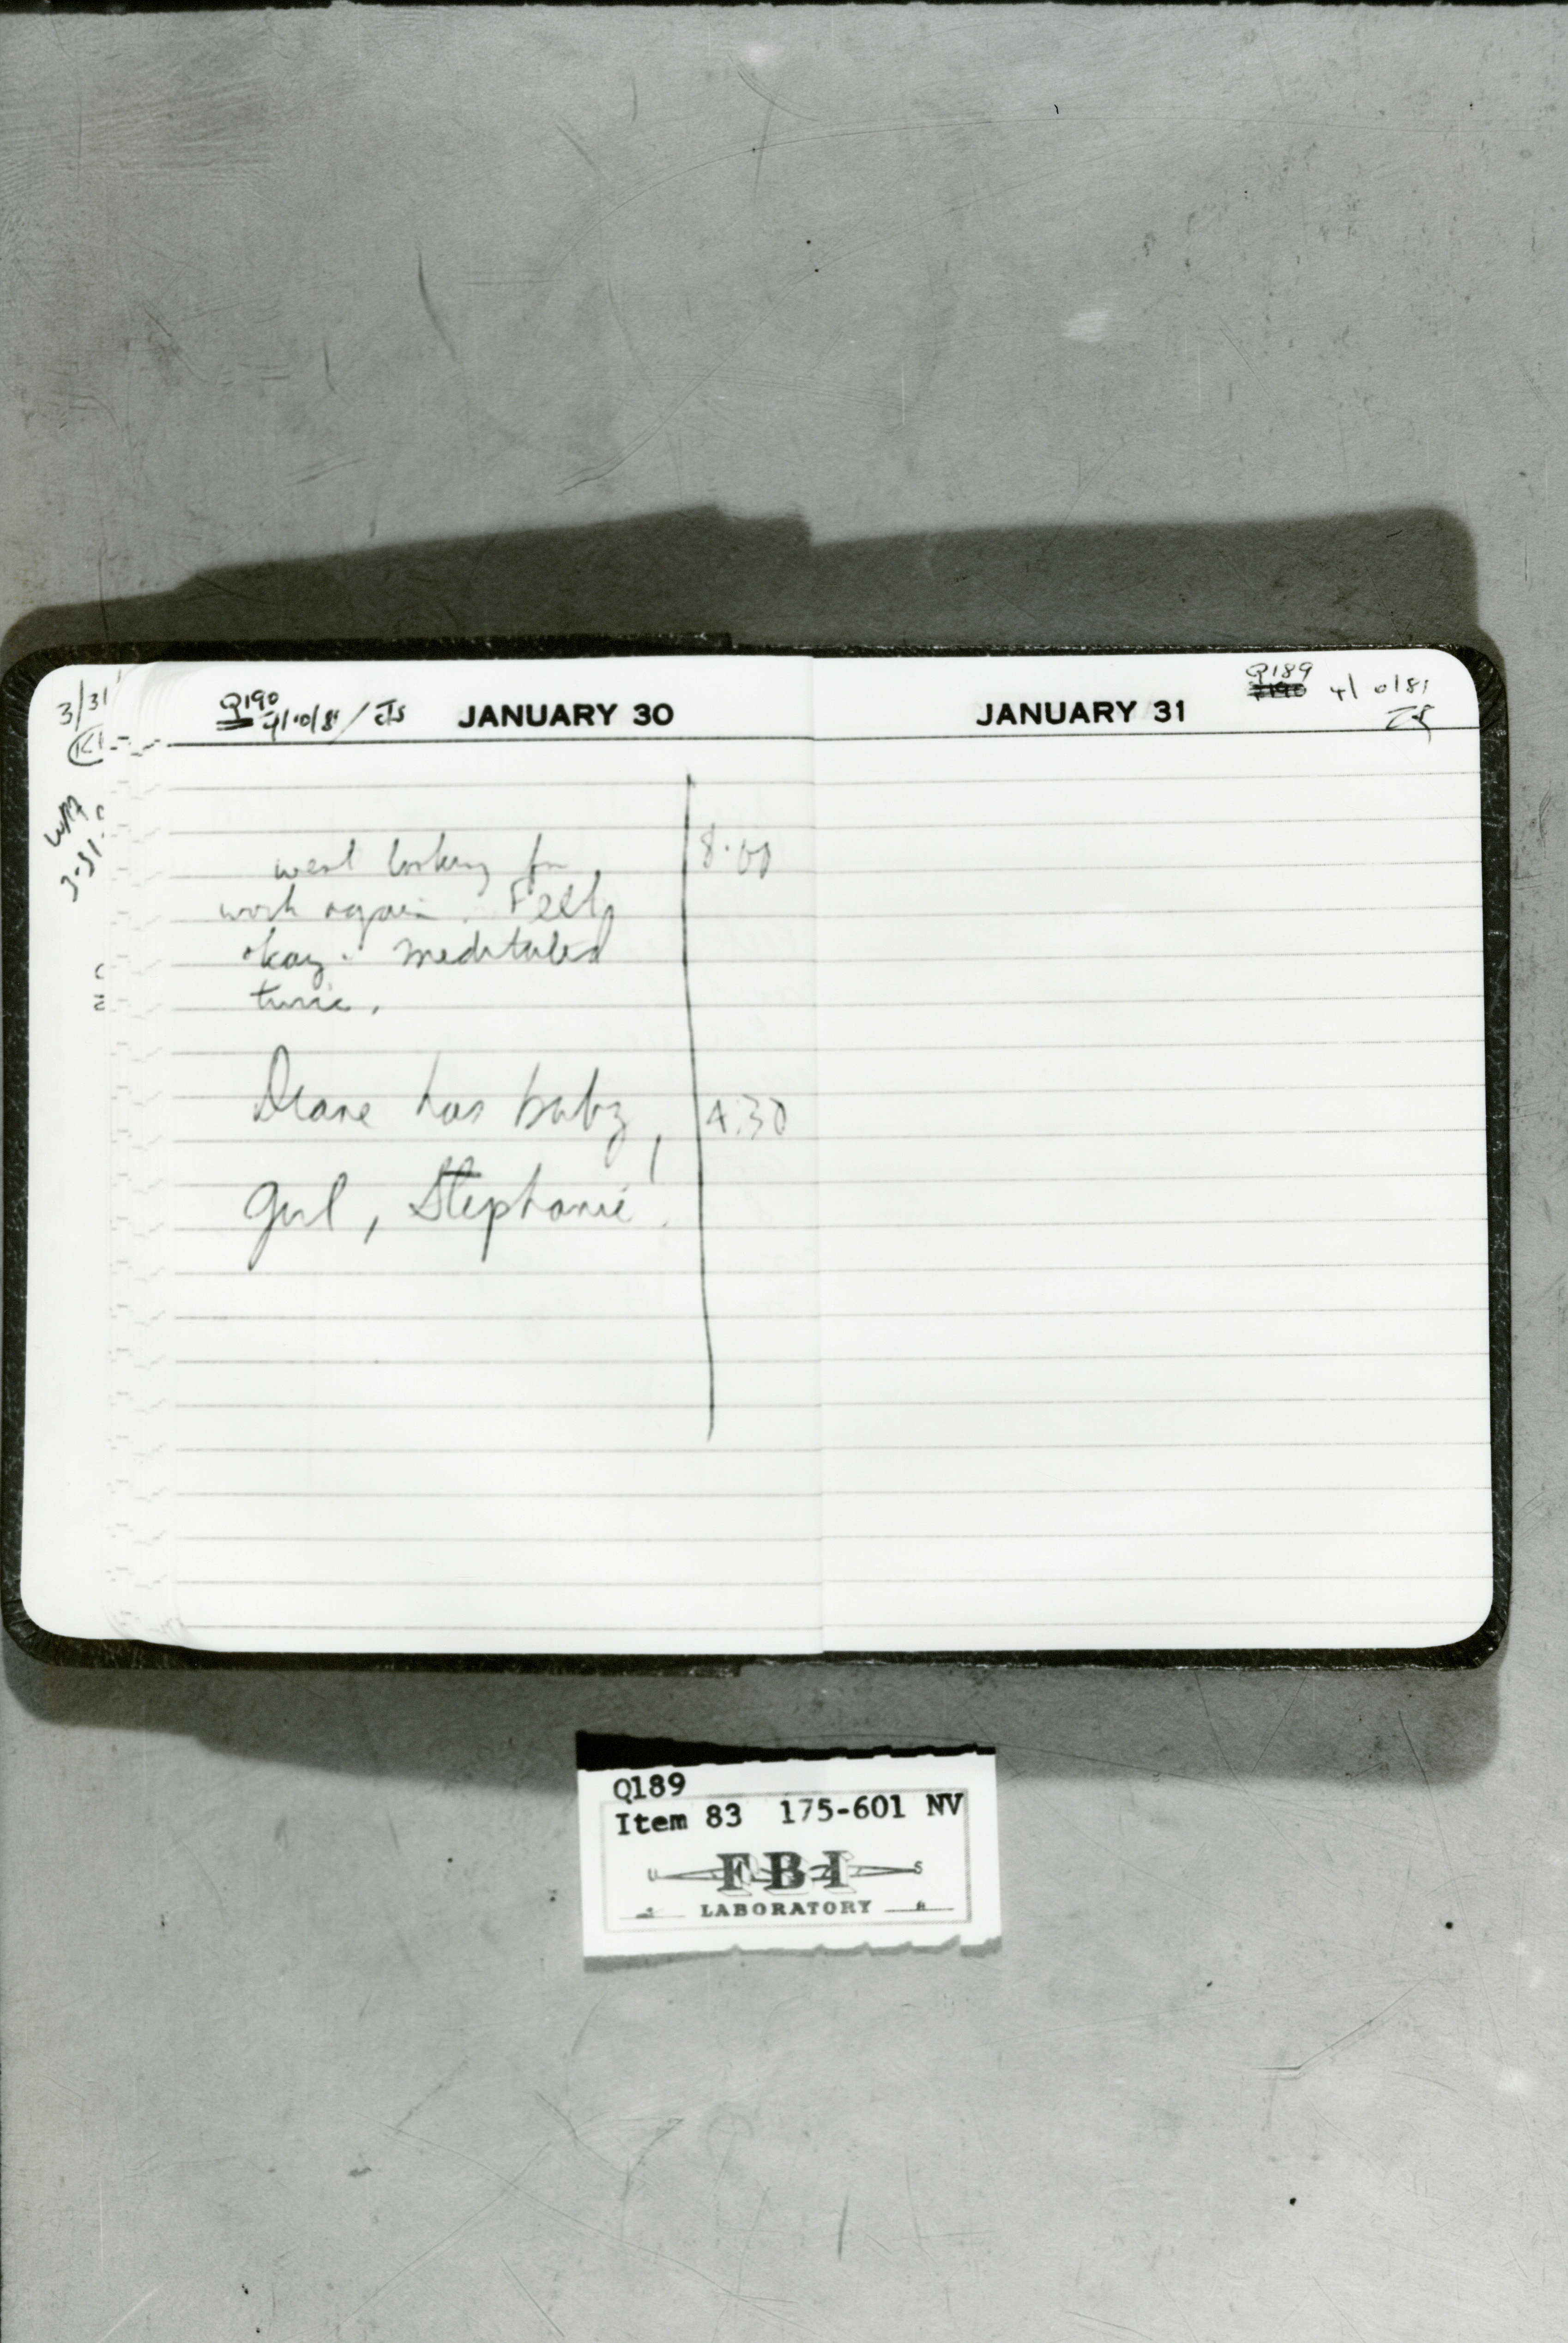 3/31
Q190
4/10/81 / JTS
JANUARY 30
went looking for
work again. Felt
okay. Meditated
twice.
8:00
Diane has baby,
4:30
girl, Stephanie!
JANUARY 31
Q189
4/10/81
Q189
Item 83 175-601 NV
FBI
LABORATORY